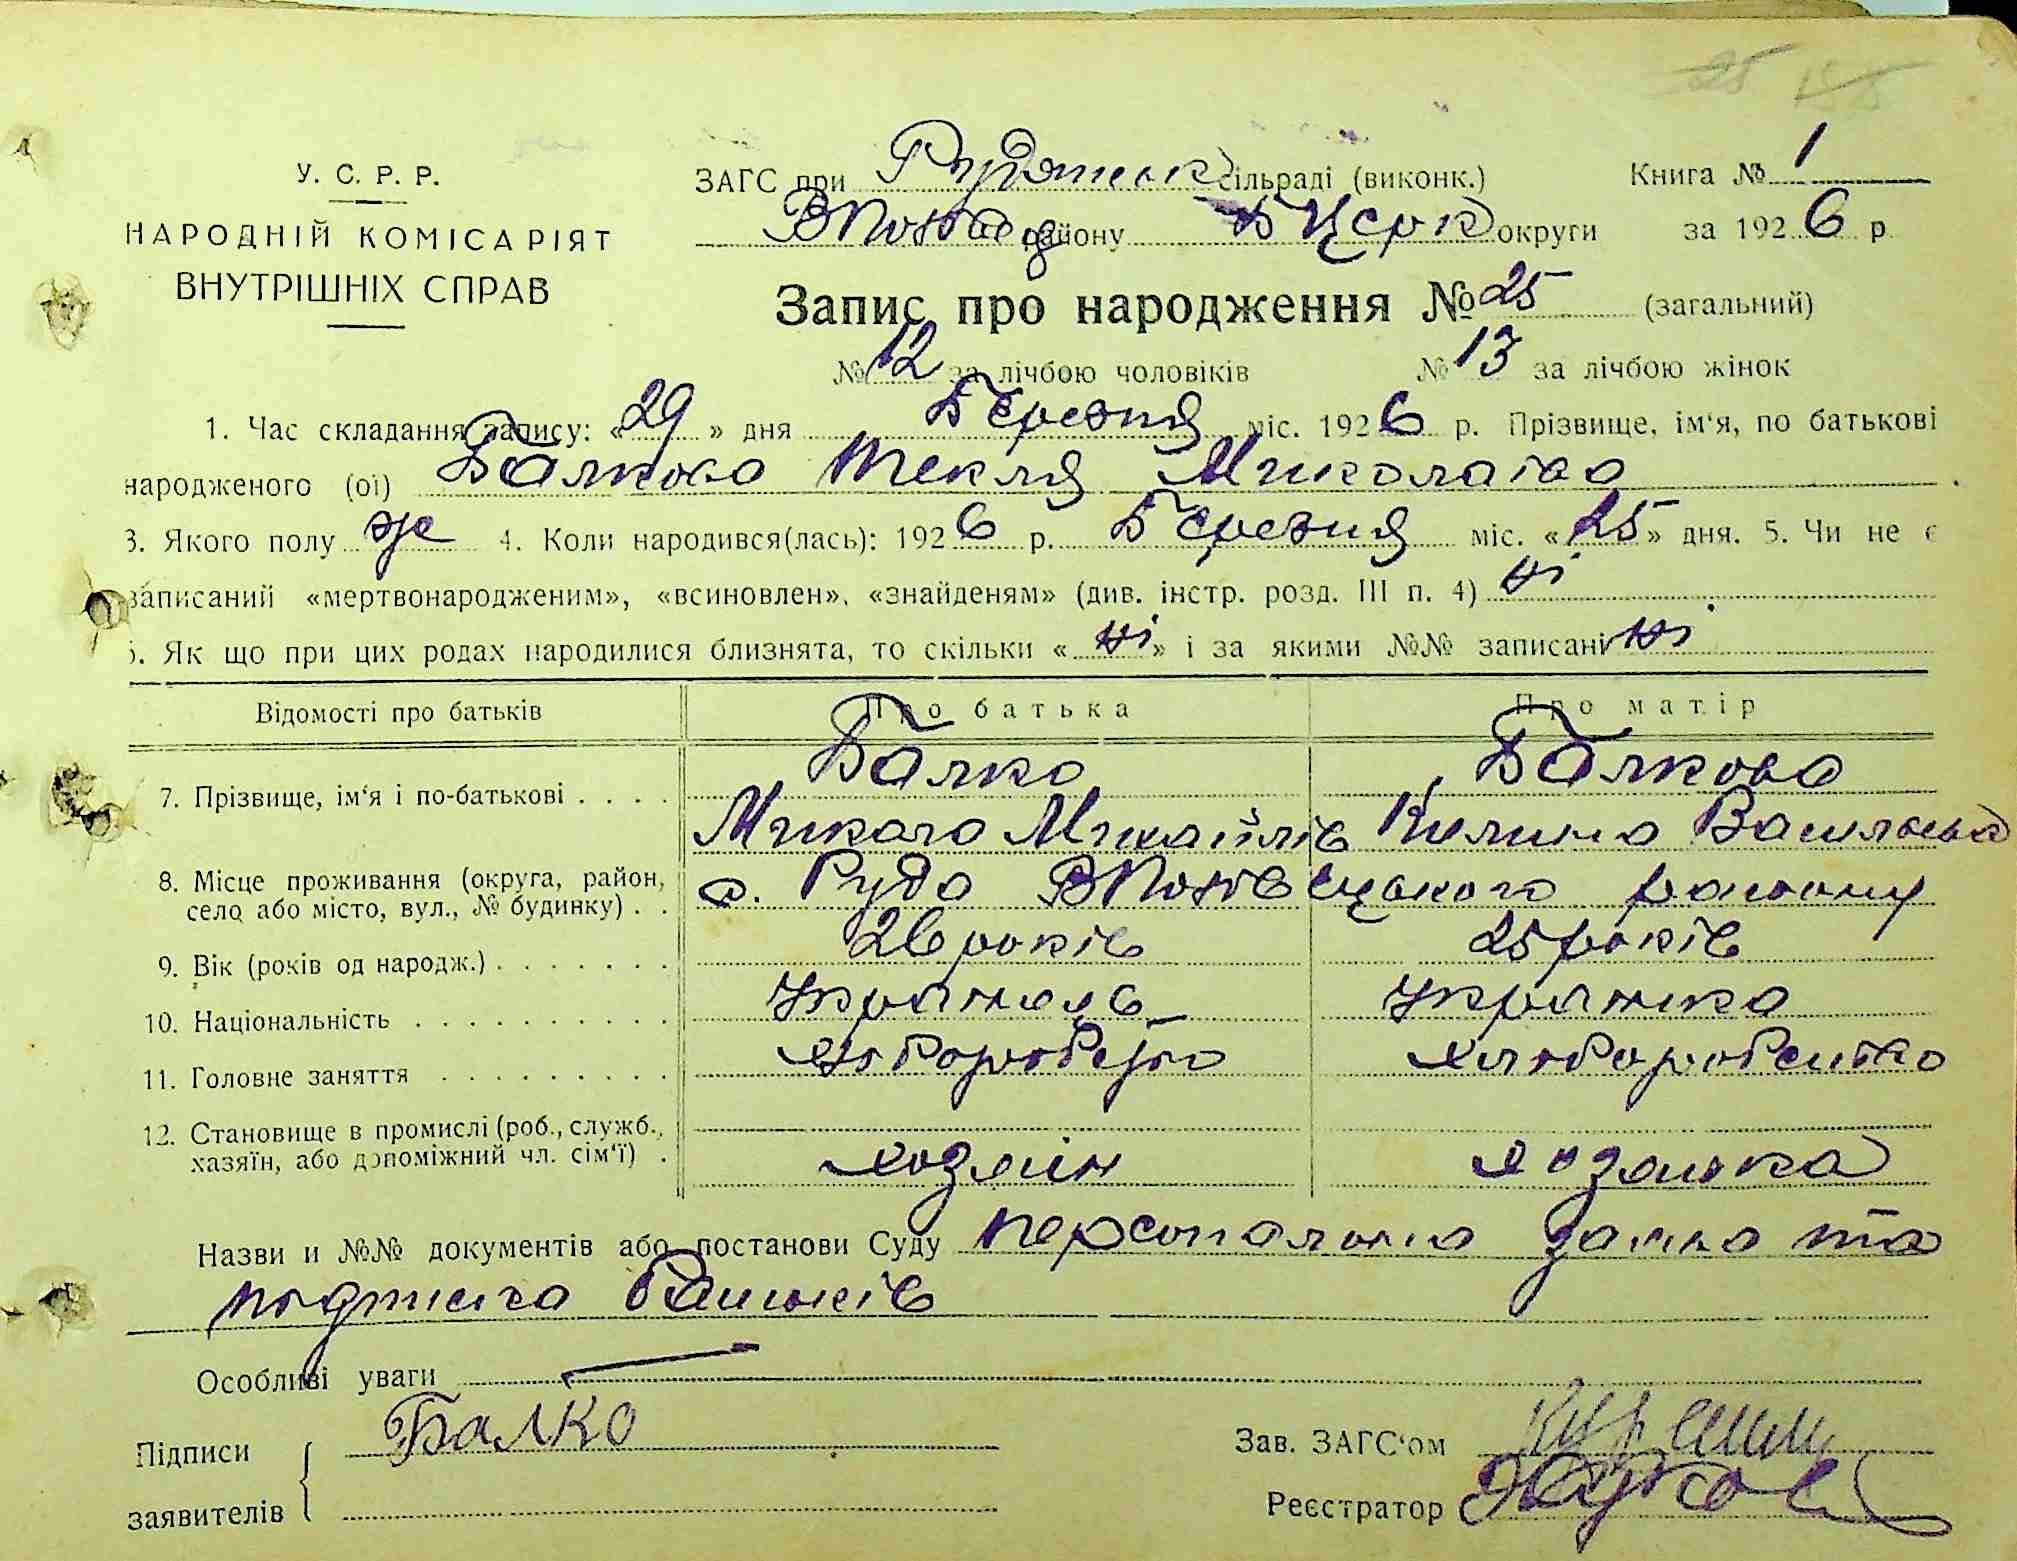 25 158
У. С. Р. Р.
НАРОДНІЙ КОМІСАРІЯТ
ВНУТРІШНІХ СПРАВ
ЗАГС при Рудянськ сільраді (виконк.) Книга № 1
району БЦерк округи за 1926 р
Запис про народження № 25 (загальний)
№ 12 за лічбою чоловіків № 13 за лічбою жінок
1. Час складання запису: «29» дня Березня міс. 1926 р. Прізвище, ім'я, по батькові
народженого (ої) Балкова Текля Миколаїва.
3. Якого полу ж 4. Коли народився(лась): 1926 р. Березня міс. «25» дня. 5. Чи не є
записаний «мертвонародженим», «всиновлен», «знайденям» (див. інстр. розд. III п. 4) ні
. Як що при цих родах народилися близнята, то скільки «ні» і за якими №№ записані ні
Відомості про батьків Про батька Про матір
7. Прізвище, ім'я і по-батькові . . . . Балко Балкова
Микола Михайлів Килина Васильева
8. Місце проживання (округа, район,
село або місто, вул., № будинку) . . с. Руда району
9. Вік (років од народж.) . . . . . . . 26 років 25 років
10. Національність . . . . . . . . . . Українець Українка
11. Головне заняття . . . . . . . . . хліборобство
12. Становище в промислі (роб., служб.,
хазяїн, або допоміжний чл. сім'ї) . хозяін хозяйка
Назви и №№ документів або постанови Суду персональна заява та
подписка батьків
Особливі уваги
Підписи Балко Зав. ЗАГС'ом
заявителів Реєстратор